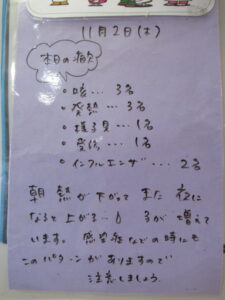 11月2日(木)
本日の欠
・咳… 3名
・発熱… 3名
・様子見…1名
・受診…1名
・インフルエンザ… 2名
朝 熱が下がって また 夜に
なると上がる… 子が 増えて
います。感染症などの時にも
このパターンがありますので
注意しましょう。